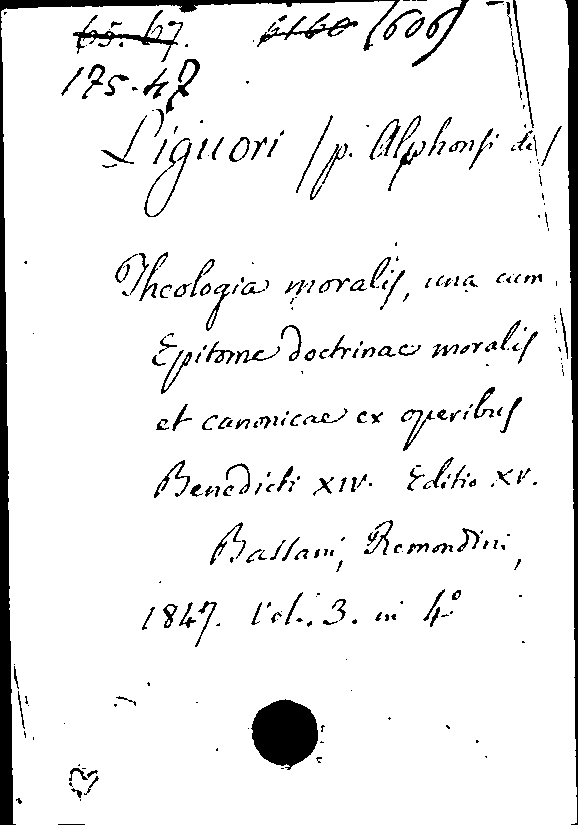 65. 67. 6160 (606)
175.47
Liguori (p. Alphonsi de)
Theologia moralis, una cum
Epitome doctrinae moralis
et canonicae ex operibus
Benedicti XIV. Editio XV.
Bassani, Remondini,
1847. Vol. 3. in 4º